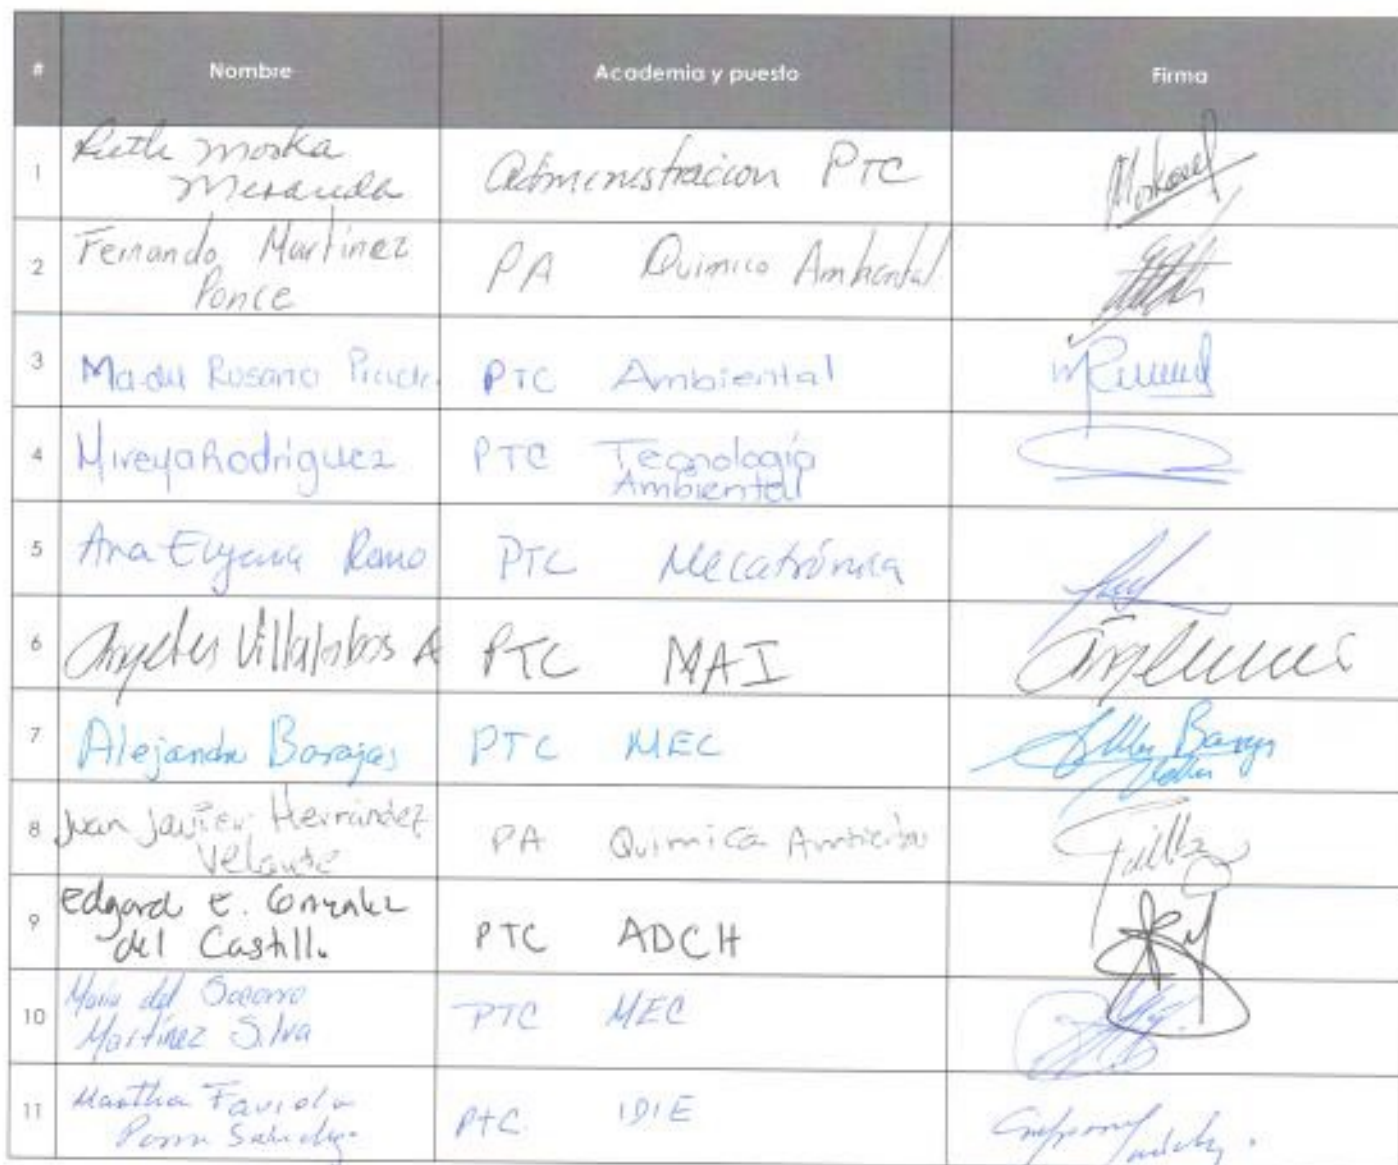 # Nombre Academia y puesto Firma
1 Ruth Moska
Miranda Administracion PTC
2 Fernando Martínez
Ponce PA Quimico Ambiental
3 Ma del Rosario PTC Ambiental
4 Mireya Rodriguez PTC Tecnología
Ambiental
5 Ana Eugenia Romo PTC Mecatrónica
6 Angeles Villalobos A PTC MAI
7 Alejandra Barajas PTC MEC
8 Juan Javier Hernández
PA Quimica Ambiental
9 Edgard E. Gonzalez
del Castillo PTC ADCH
10 María del Socorro
Martínez Silva PTC MEC
11 Martha Faviola
PTC IDIE